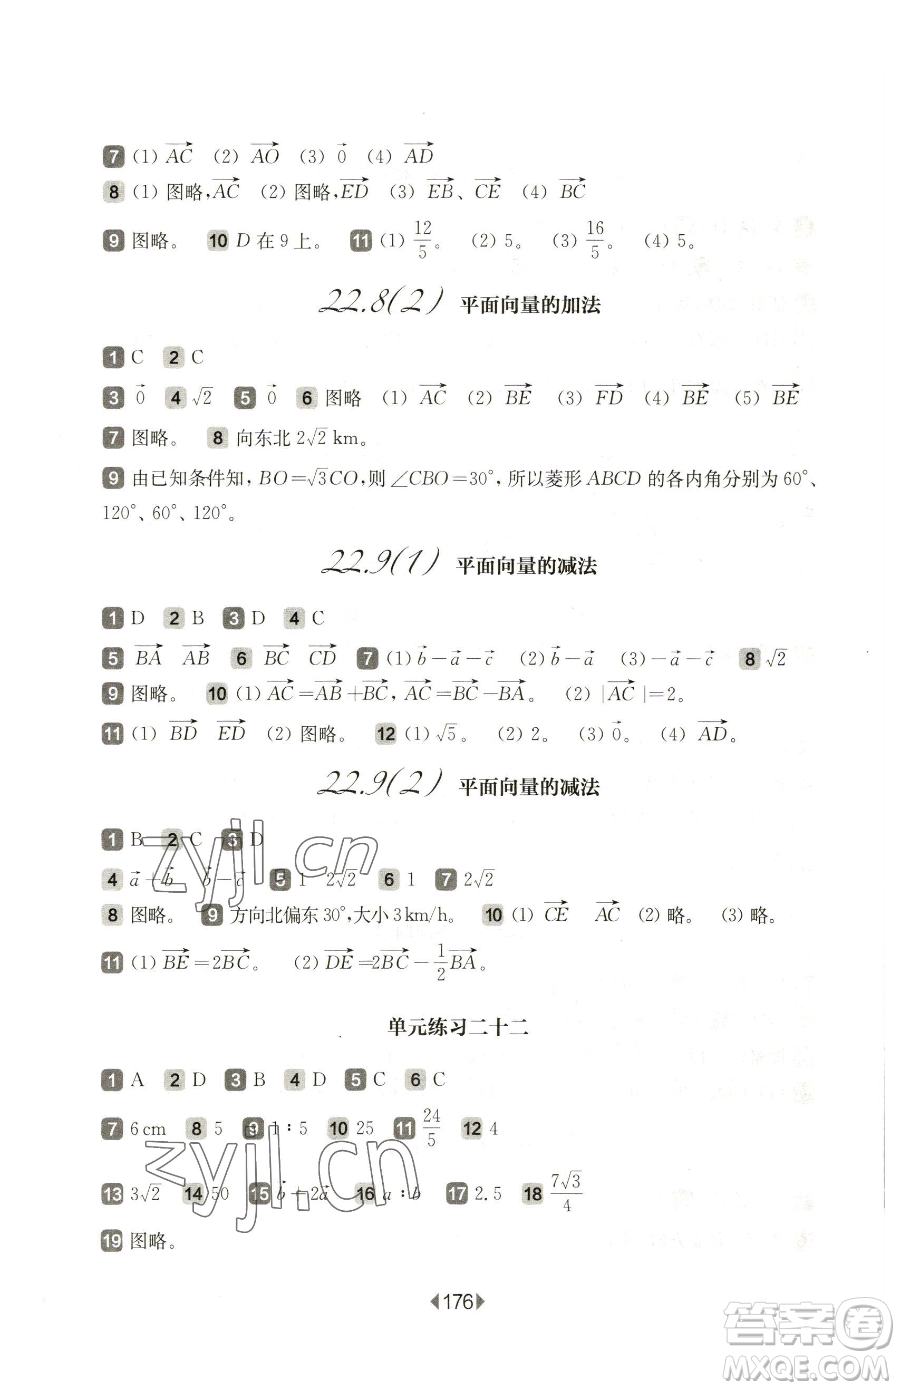 7 (1) $\overrightarrow{AC}$ (2) $\overrightarrow{AO}$ (3) $\vec{0}$ (4) $\overrightarrow{AD}$
8 (1) 图略,$\overrightarrow{AC}$ (2) 图略,$\overrightarrow{ED}$ (3) $\overrightarrow{EB}$、$\overrightarrow{CE}$ (4) $\overrightarrow{BC}$
9 图略。 10 D 在 9 上。 11 (1) $\frac{12}{5}$。 (2) 5。 (3) $\frac{16}{5}$。 (4) 5。
22.8(2) 平面向量的加法
1 C 2 C
3 $\vec{0}$ 4 $\sqrt{2}$ 5 $\vec{0}$ 6 图略 (1) $\overrightarrow{AC}$ (2) $\overrightarrow{BE}$ (3) $\overrightarrow{FD}$ (4) $\overrightarrow{BE}$ (5) $\overrightarrow{BE}$
7 图略。 8 向东北 $2\sqrt{2}$ km。
9 由已知条件知,BO=$\sqrt{3}$CO,则∠CBO=30°,所以菱形 ABCD 的各内角分别为 60°、
120°、60°、120°。
22.9(1) 平面向量的减法
1 D 2 B 3 D 4 C
5 $\overrightarrow{BA}$ $\overrightarrow{AB}$ 6 $\overrightarrow{BC}$ $\overrightarrow{CD}$ 7 (1) $\vec{b}-\vec{a}-\vec{c}$ (2) $\vec{b}-\vec{a}$ (3) $-\vec{a}-\vec{c}$ 8 $\sqrt{2}$
9 图略。 10 (1) $\overrightarrow{AC}=\overrightarrow{AB}+\overrightarrow{BC}$, $\overrightarrow{AC}=\overrightarrow{BC}-\overrightarrow{BA}$。 (2) $|\overrightarrow{AC}|=2$。
11 (1) $\overrightarrow{BD}$ $\overrightarrow{ED}$ (2) 图略。 12 (1) $\sqrt{5}$。 (2) 2。 (3) $\vec{0}$。 (4) $\overrightarrow{AD}$。
22.9(2) 平面向量的减法
1 B 2 C 3 D
4 $\vec{a}-\vec{b}$ $\vec{b}-\vec{c}$ 5 1 $2\sqrt{2}$ 6 1 7 $2\sqrt{2}$
8 图略。 9 方向北偏东 30°,大小 3 km/h。 10 (1) $\overrightarrow{CE}$ $\overrightarrow{AC}$ (2) 略。 (3) 略。
11 (1) $\overrightarrow{BE}=2\overrightarrow{BC}$。 (2) $\overrightarrow{DE}=2\overrightarrow{BC}-\frac{1}{2}\overrightarrow{BA}$。
单元练习二十二
1 A 2 D 3 B 4 D 5 C 6 C
7 6 cm 8 5 9 1∶5 10 25 11 $\frac{24}{5}$ 12 4
13 $3\sqrt{2}$ 14 50 15 $\vec{b}+2\vec{a}$ 16 a∶b 17 2.5 18 $\frac{7\sqrt{3}}{4}$
19 图略。
176
zyjl.cn
zyjl.cn
答案圈
MXQE.COM